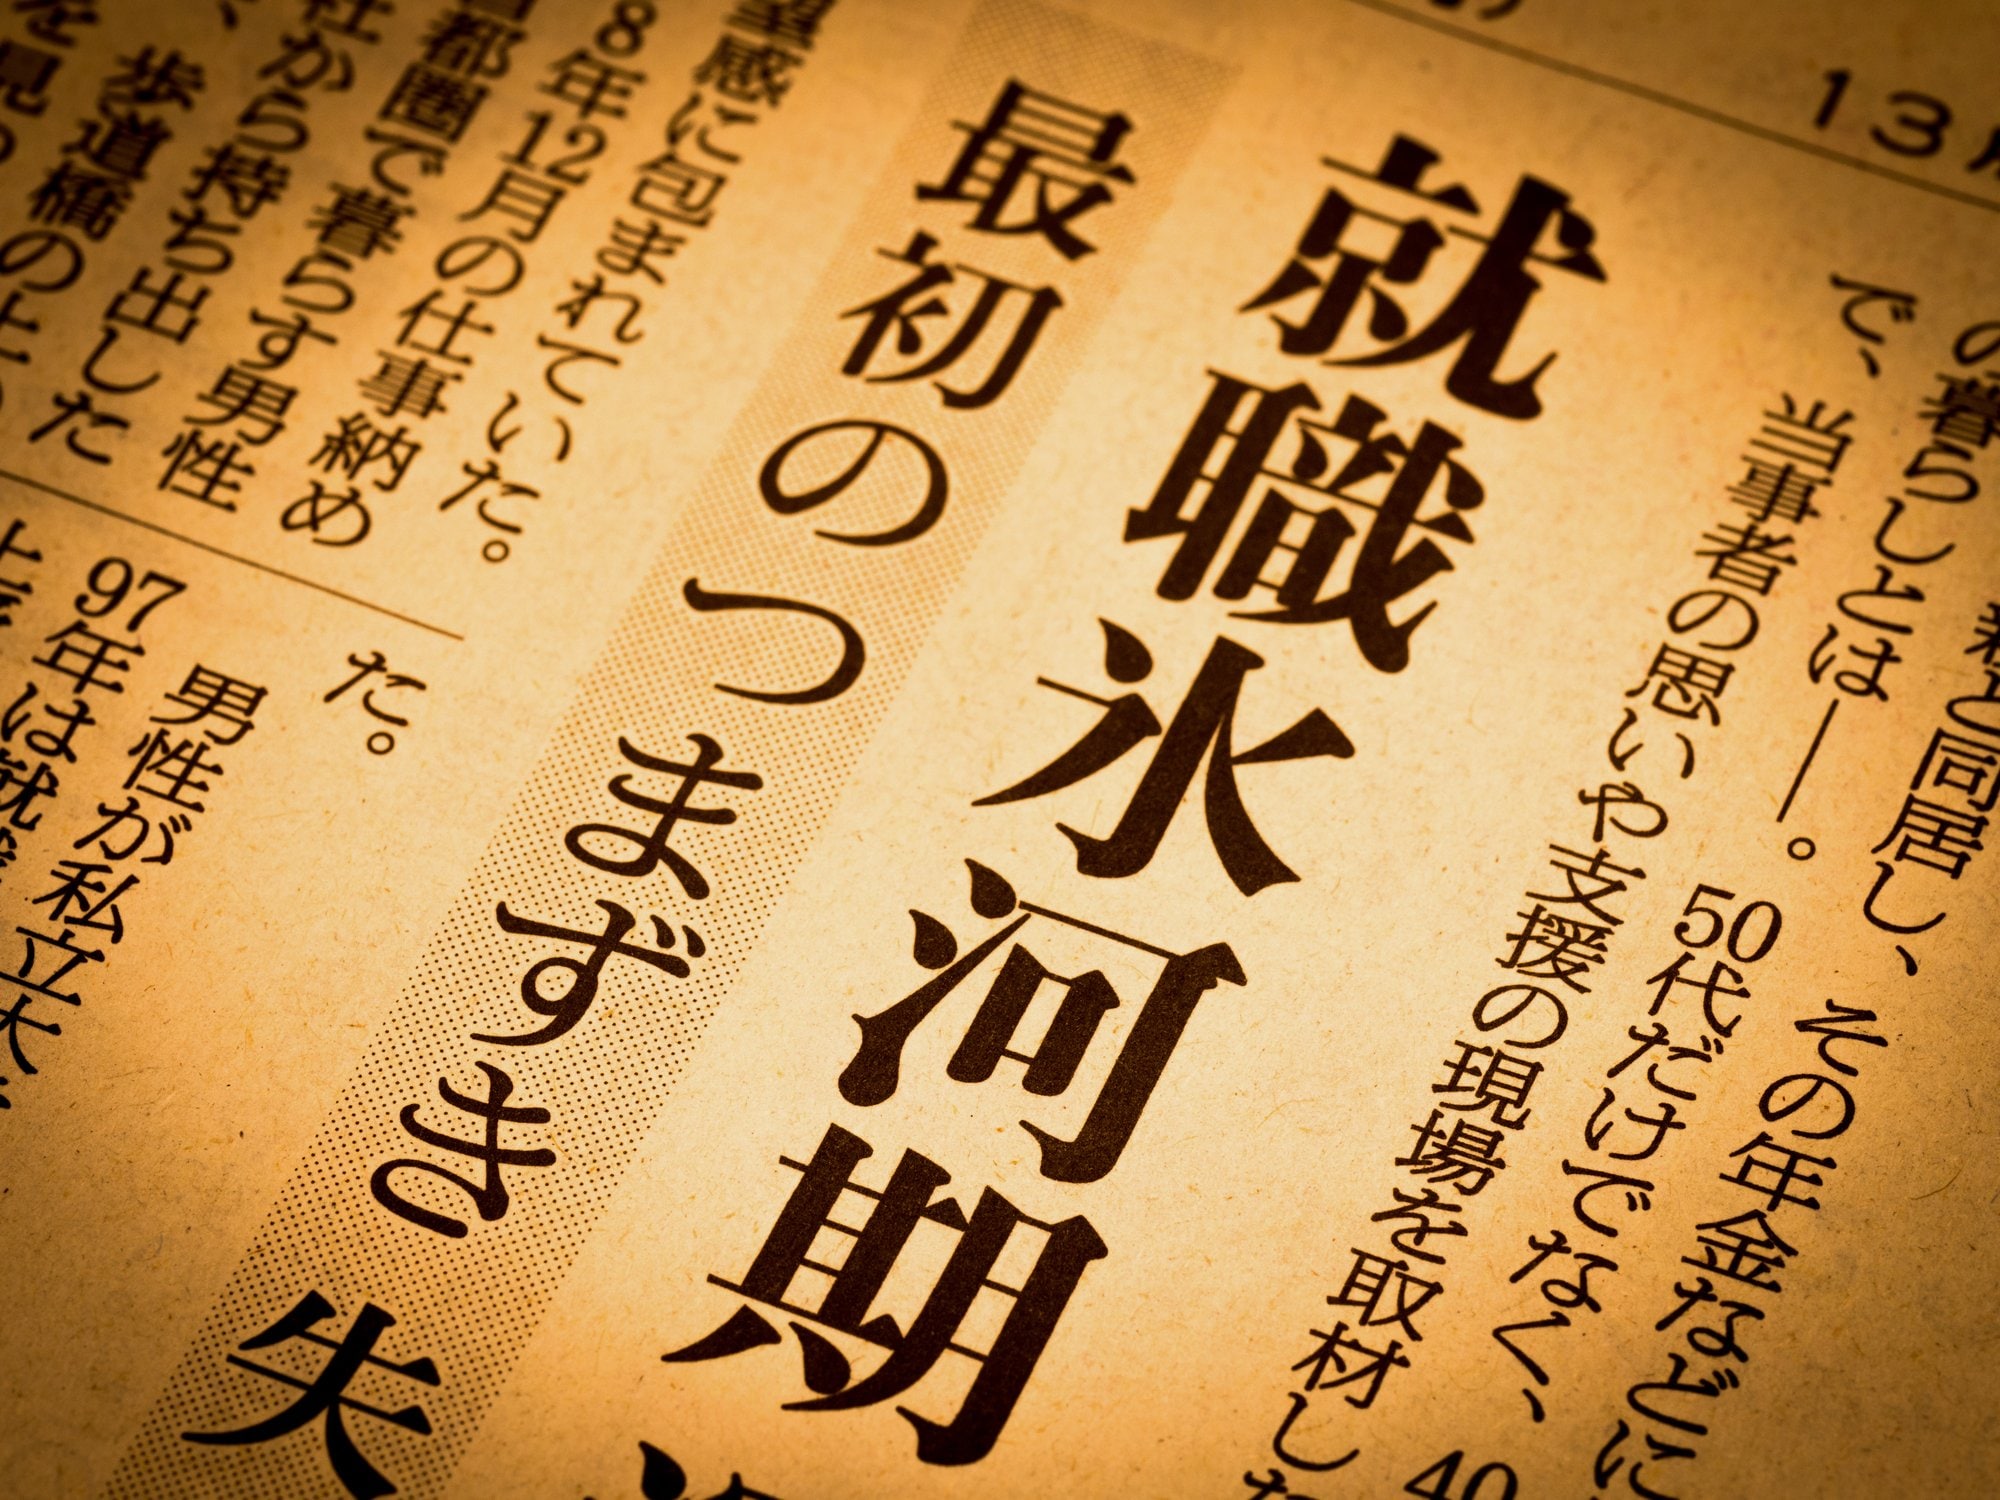 13
の暮らしとは――。50代だけでなく、40
親と同居し、その年金などに
で、当事者の思いや支援の現場を取材した
就職氷河期
最初のつまずき 失
望感に包まれていた。
8年12月の仕事納め
都圏で暮らす男性
社から持ち出した
歩道橋の上
を見
た。
男性が私立大
97年は就